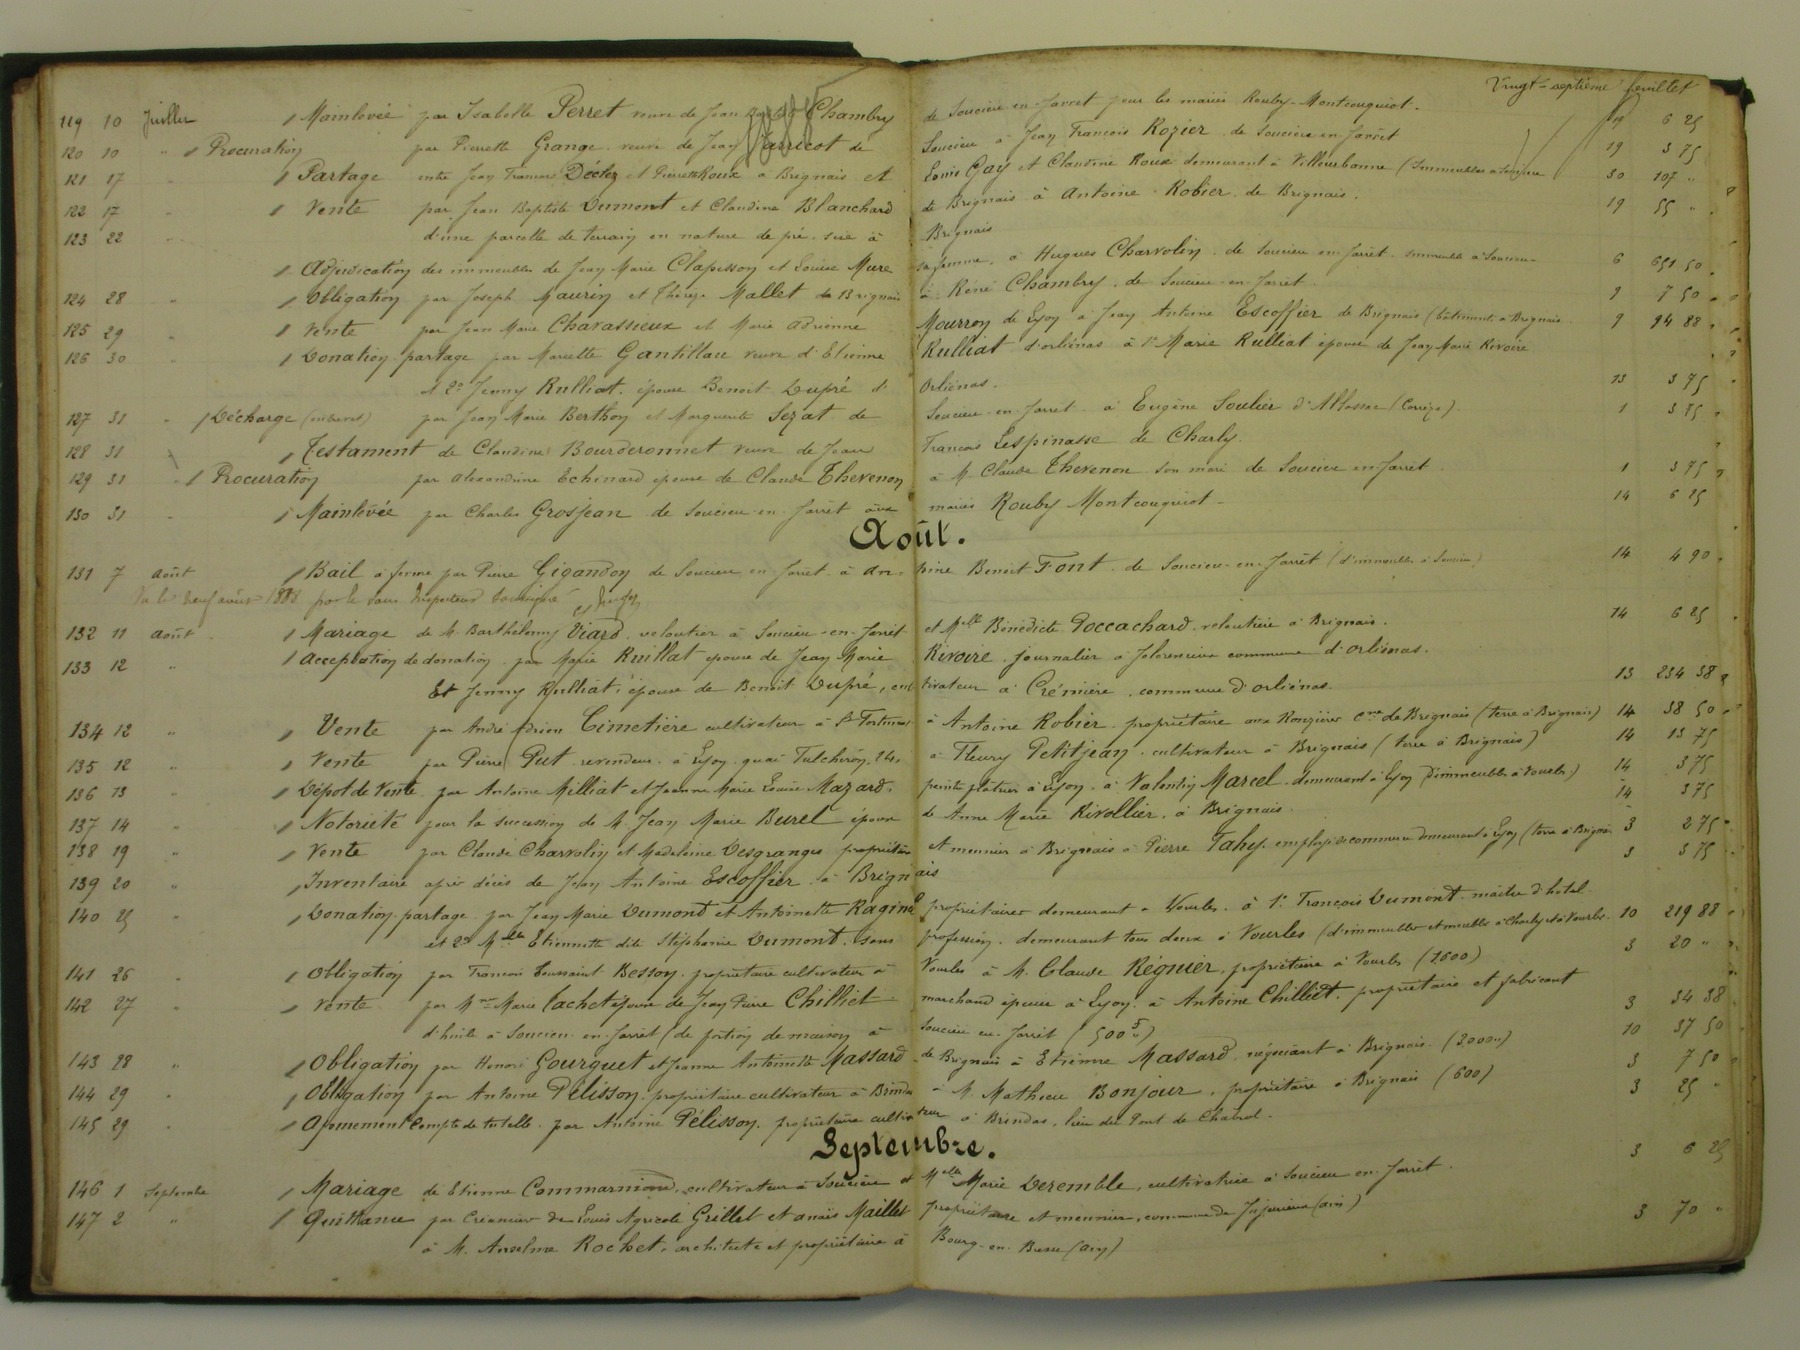 Vingt-septième feuillet
119 10 Juillet Mainlevée par Isabelle Perret veuve de Jean Baptiste Chambry de Soucieu-en-Jarret pour les mariés Rouby-Montcouquiot. 19 6 25
120 10 " Procuration par Pierrette Grange veuve de Jean Jarricot de Soucieu à Jean François Rozier de Soucieu en Jarret 19 3 75
121 17 " Partage entre Jean François Déclez et Pierrette Roux à Brignais et Louis Gay et Claudine Roux demeurant à Villeurbanne (Immeubles à 30 107 "
122 17 " Vente par Jean Baptiste Dumont et Claudine Blanchard de Brignais à Antoine Robier de Brignais. 19 55 "
123 22 " d'une parcelle de terrain en nature de pré sise à Brignais
Adjudication des immeubles de Jean Marie Clapisson et Louise Mure sa femme, à Hugues Charvolin de Soucieu en Jarret immeuble à Soucieu 6 651 50
124 28 " Obligation par Joseph Maurin et Thérèse Mallet de Brignais à Réné Chambry de Soucieu-en-Jarret 9 7 50
125 29 " Vente par Jean Marie Chavassieux et Marie Adrienne Mourron de Lyon à Jean Antoine Escoffier de Brignais (bâtiments à Brignais 9 94 88
126 30 " Donation-partage par Mariette Gantillon veuve d'Etienne Rulliat d'orliénas à 1° Marie Rulliat épouse de Jean Marie Rivoire
et 2° Jenny Rulliat épouse Benoit Dupré d'Orliénas. 13 3 75
127 31 " Décharge par Jean Marie Berthon et Marguerite Sezat de Soucieu-en-Jarret à Eugène Soulier d'Allassac (Corrèze) 1 3 75
128 31 Testament de Claudine Bourderonnet veuve de Jean François Lespinasse de Charly.
129 31 " Procuration par Alexandrine Echinard épouse de Claude Thevenon à M. Claude Thevenon son mari de Soucieu en-Jarret 1 3 75
130 31 " Mainlevée par Charles Grosjean de Soucieu-en-Jarret aux mariés Rouby Montcouquiot 14 6 25
Août.
131 7 août Bail à ferme par Pierre Gigandon de Soucieu en Jarret à An- Benoit Font de Soucieu-en-Jarret (d'immeubles à Soucieu) 14 4 90
neuf août 1888 par le sous Inspecteur soussigné
132 11 août Mariage de M. Barthélemy Viard veloutier à Soucieu-en-Jarret et Melle Bénédicte Poccachard veloutière à Brignais. 14 6 25
133 12 " Acceptation de donation par Marie Rulliat épouse de Jean Marie Rivoire journalier à commune d'Orliénas.
Et Jenny Rulliat, épouse de Benoit Dupré, cultivateur à Crémière, commune d'Orliénas. 13 234 38
134 12 " Vente par André Adrien Cimetière cultivateur à St à Antoine Robier propriétaire aux Ronzières cne de Brignais (terre à Brignais) 14 38 50
135 12 " Vente par Pierre Put revendeur à Lyon quai Fulchiron, 24, à Fleury Petitjean cultivateur à Brignais (terre à Brignais) 14 13 75
136 13 " Dépôt de Vente par Antoine Milliat et Jeanne Marie Louise Mazard, peintre plâtrier à Lyon à Valentin Marcel demeurant à Lyon (d'immeubles à Vourles) 14 3 75
137 14 " Notoriété pour la succession de M. Jean Marie Burel époux de Anne Marie Rivollier à Brignais 14 3 75
138 19 " Vente par Claude Charvolin et Madeleine Desgranges propriétaire et meunier à Brignais à Pierre Tahy employé de commerce demeurant à Lyon (terre à Brignais 3 275
139 20 " Inventaire après décès de Jean Antoine Escoffier à Brignais 3 3 75
140 25 " Donation-partage par Jean Marie Dumond et Antoinette Ragine propriétaires demeurant à Vourles à 1° François Dumont maître d'hôtel
et 2° Melle Etiennette dite Stéphanie Dumont, sans profession, demeurant tous deux à Vourles (d'immeubles et meubles à Charly et à Vourles. 10 219 88
141 26 " Obligation par François Toussaint Besson propriétaire cultivateur à Vourles à M. Claude Régnier, propriétaire à Vourles (1,600) 3 20 "
142 27 " Vente par Mme Marie Lachet épouse de Jean Pierre Chilliet marchand épicier à Lyon à Antoine Chilliet, propriétaire et fabricant
d'huile à Soucieu-en-Jarret (de portion de maison à Soucieu-en-Jarret (500 f) 3 34 38
143 28 " Obligation par Honoré Gourguet et Jeanne Antoinette Massard de Brignais à Etienne Massard négociant à Brignais (3.000) 10 37 50
144 29 " Obligation par Antoine Pélisson propriétaire cultivateur à Brindas à M. Mathieu Bonjour, propriétaire à Brignais (600) 3 7 50
145 29 " Apurement Compte de tutelle par Antoine Pélisson, propriétaire cultivateur à Brindas, lieu du Pont de Chabrol. 3 25 "
Septembre.
146 1 Septembre Mariage de Etienne Commarmond, cultivateur à Soucieu et Melle Marie Deremble, cultivatrice à Soucieu-en-Jarret. 3 6 25
147 2 " Quittance par Créanciers de Louis Agricole Grillet et Anaïs Maillet propriétaire et meunier, commune de Jujurieux (ain)
à M. Anselme Rochet, architecte et propriétaire à Bourg-en-Bresse (ain) 3 70 "